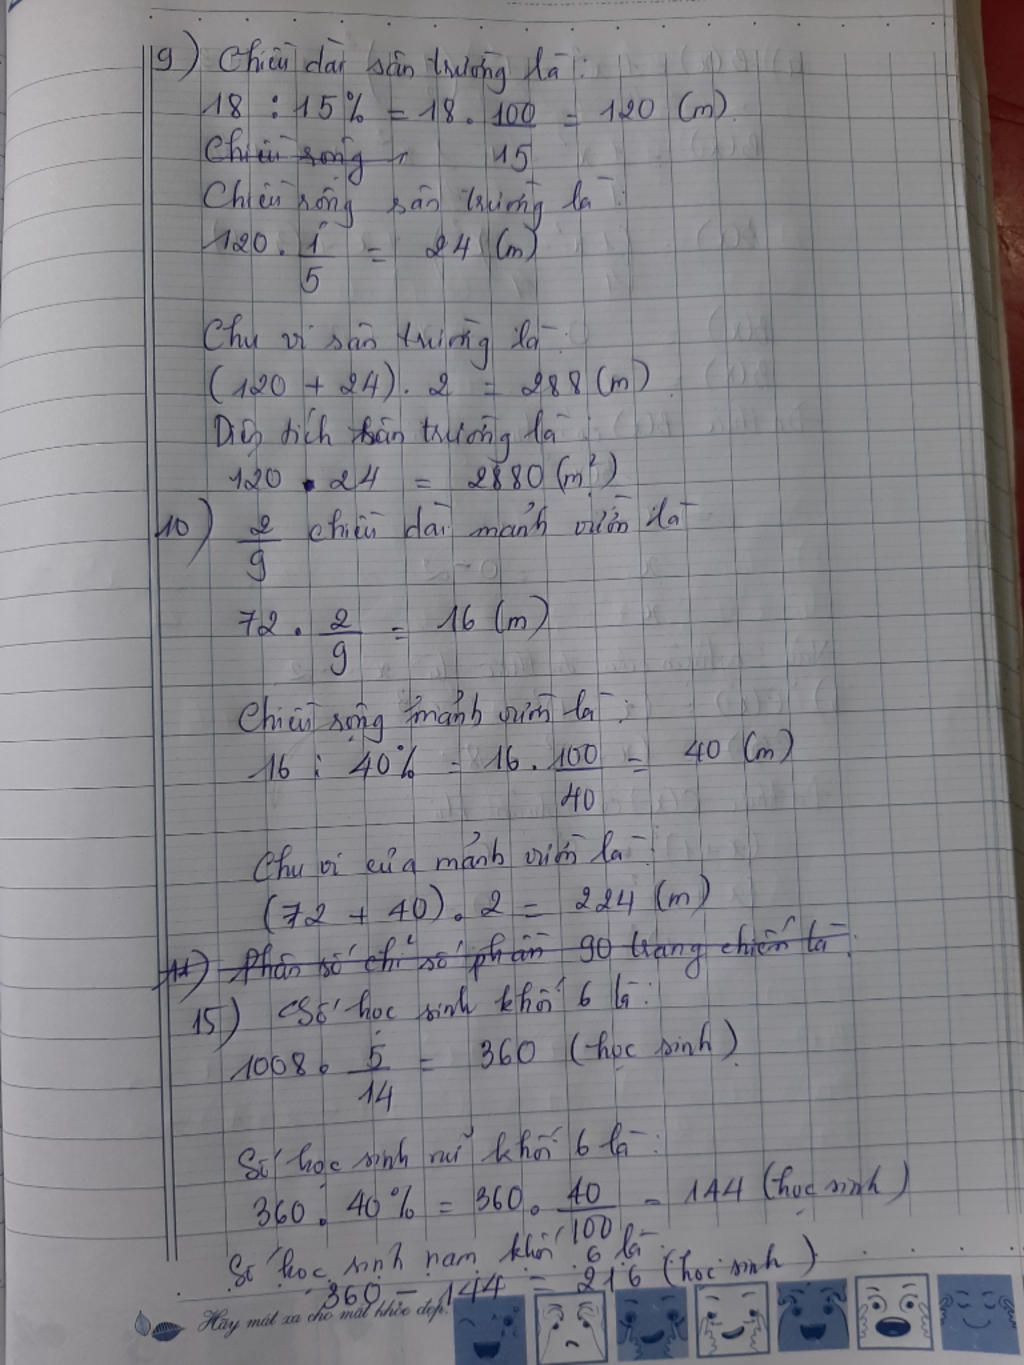 9) Chiều dài sân trường là:
18 : 15% = 18 . 100/15 = 120 (m)
Chiều rộng
Chiều rộng sân trường là:
120 . 1/5 = 24 (m)
Chu vi sân trường là:
(120 + 24) . 2 = 288 (m)
Diện tích sân trường là:
120 . 24 = 2880 (m²)
10) 2/9 chiều dài mảnh vườn là
72 . 2/9 = 16 (m)
Chiều rộng mảnh vườn là:
16 : 40% = 16 . 100/40 = 40 (m)
Chu vi của mảnh vườn là:
(72 + 40) . 2 = 224 (m)
11) Phân số chỉ số phần 90 trang chiếm là:
15) Số học sinh khối 6 là:
1008 . 5/14 = 360 (học sinh)
Số học sinh nữ khối 6 là:
360 : 40% = 360 . 40/100 = 144 (học sinh)
Số học sinh nam khối 6 là:
360 - 144 = 216 (học sinh)
Hãy mát xa cho mắt khỏe đẹp.